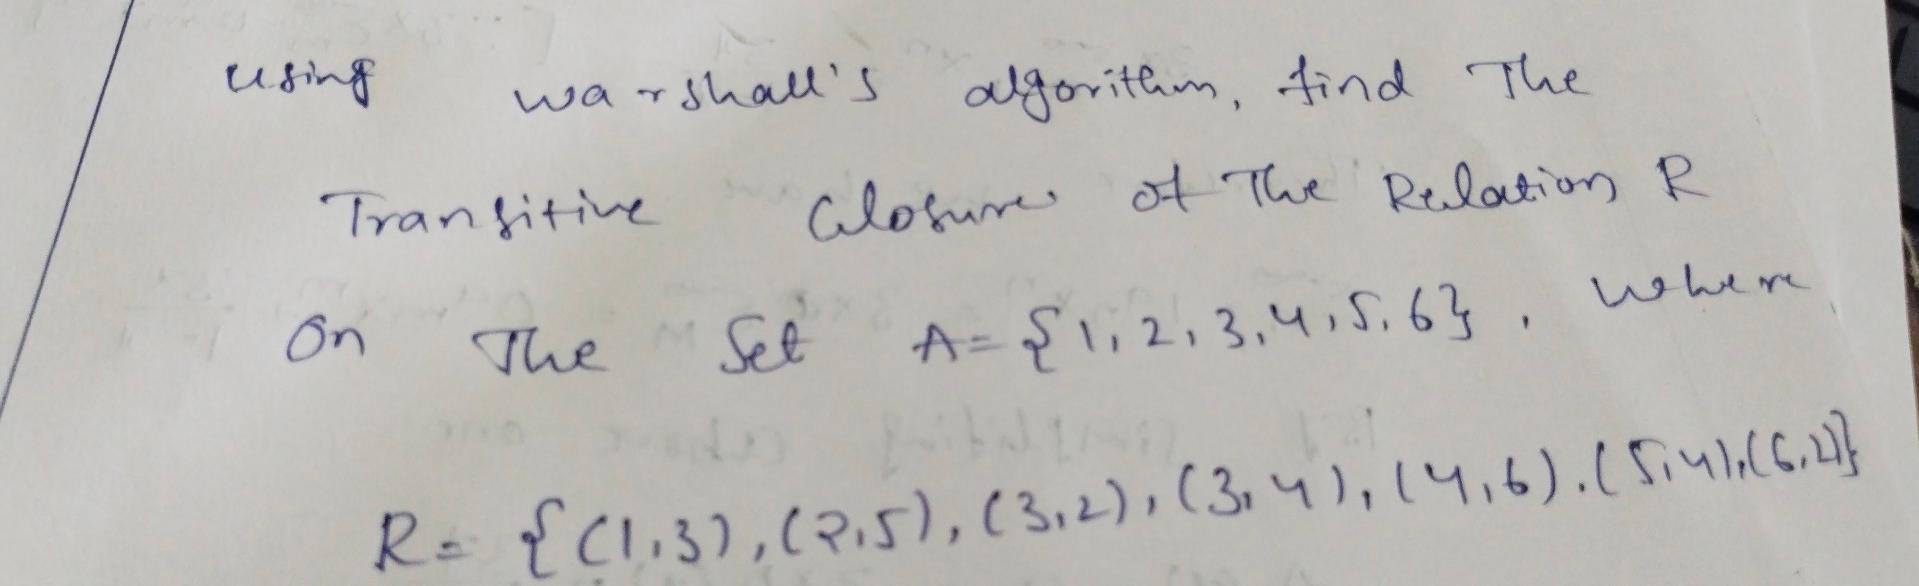 using warshall's algorithm, find The
Transitive Closure of The Relation R
On The Set A={1,2,3,4,5,6}, where
R= {(1,3),(2,5),(3,2),(3,4),(4,6).(5,4),(6,2)}